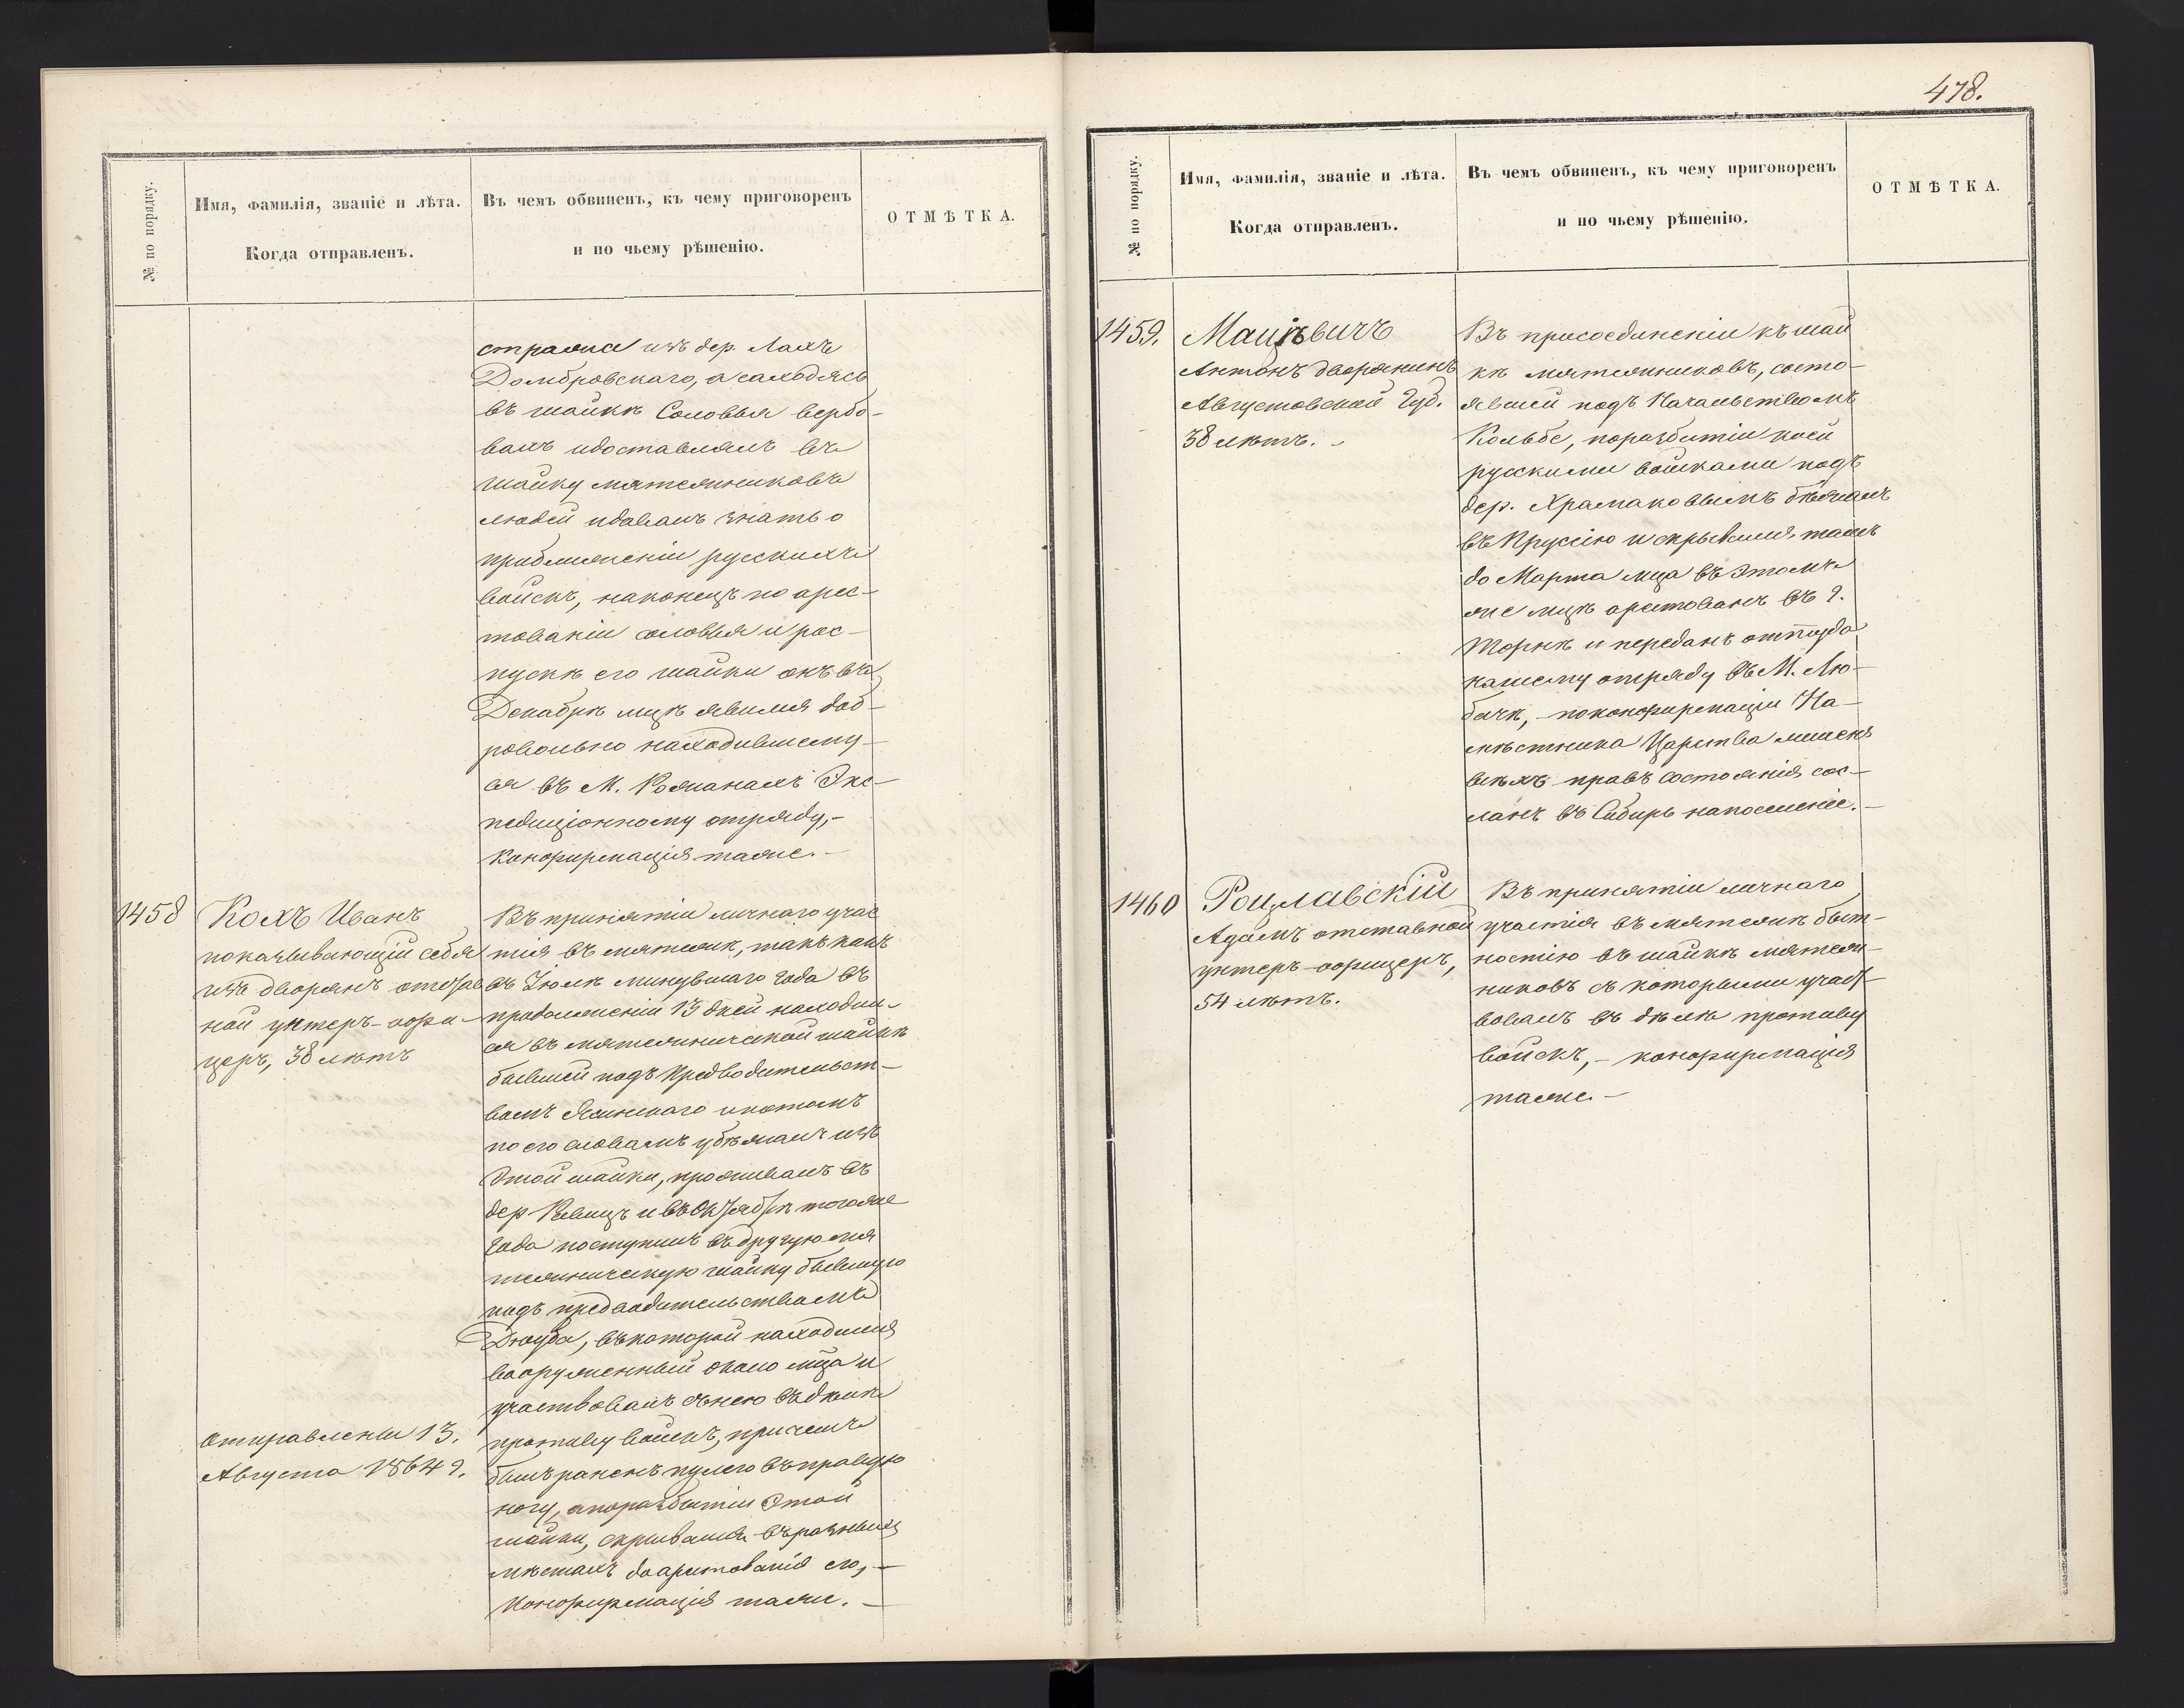 № по порядку.
Имя, фамилія, званіе и лѣта.
Когда отправленъ.
Въ чемъ обвиненъ, къ чему приговоренъ
и по чьему рѣшенію.
ОТМѢТКА.
изъ дер. Ляхъ
Домбровскаго, а находясь
въ шайкѣ Соловья вербо-
валъ и доставлялъ въ
шайку мятежниковъ
людей и давалъ знать о
приближеніи русскихъ
войскъ, наконецъ по арес-
тованіи Соловья и рос-
пускѣ его шайки онъ въ
Декабрѣ мцѣ явился доб-
ровольно находившему-
ся въ М. Экс-
педиціонному отряду,-
Конфирмація таже.-
1458
Кохъ Иванъ
показывающій себя
изъ дворянъ отстав
ной унтеръ-офи-
церъ, 38 лѣтъ
Отправлены 13.
Августа 1864 г.
Въ принятіи личнаго учас
тія въ мятежѣ, такъ какъ
въ Іюлѣ минувшаго года въ
продолженіи 13 дней находил-
ся въ мятежнической шайкѣ
бывшей подъ предводительст-
вомъ и потомъ
по его словамъ убѣжалъ изъ
этой шайки, проживалъ въ
дер. и въ Октябрѣ тогоже
года поступилъ въ другую мя
тежническую шайку бывшую
подъ предводительствомъ
въ которой находился
вооруженный около мца и
участвовалъ съ нею въ дѣлѣ
противу войскъ, при чемъ
былъ раненъ пулею въ правую
ногу, а по разбитіи этой
шайки, скрывался въ разныхъ
мѣстахъ до арестованія его,-
Конфирмація таже.-
478.
№ по порядку.
Имя, фамилія, званіе и лѣта.
Когда отправленъ.
Въ чемъ обвиненъ, къ чему приговоренъ
и по чьему рѣшенію.
ОТМѢТКА.
1459.
Мацѣвичъ
Антонъ дворянинъ
Августовской Губ.
38 лѣтъ.-
Въ присоединеніи къ шай
кѣ мятежниковъ, состо-
явшей подъ Начальствомъ
Кольбе, по разбитіи коей
русскими войсками подъ
дер. бѣжалъ
въ Пруссію и скрывался тамъ
до Марта мца въ этомъ
же мцѣ арестованъ въ г.
Торнѣ и переданъ оттуда
нашему отряду въ М. Лю-
бичѣ, - по конфирмаціи На-
мѣстника Царства лишенъ
всѣхъ правъ состоянія сос-
ланъ въ Сибирь на поселеніе.-
1460
Роцлавскій
Адамъ отставной
унтеръ-офицеръ,
54 лѣтъ.
Въ принятіи личнаго
участія въ мятежѣ быт-
ностію въ шайкѣ мятеж-
никовъ съ которыми участ-
вовалъ въ дѣлѣ противу
войскъ, - конфирмація
таже.-